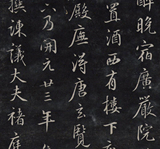 醉晚宿廣嚴院
置酒西有樓下
殿廡得唐玄覽
乃開元廿三年
撰諫議大夫褚庭